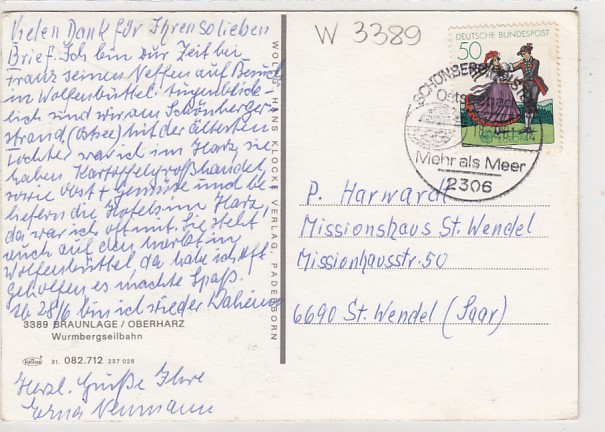 Vielen Dank für Ihren so lieben
Brief. Ich bin zur Zeit bei
Franz seinen Neffen auf Besuch
in Wolfenbüttel. Augenblick-
lich sind wir am Schönberger-
strand, (Ostsee) Mit der ältesten
Tochter war ich im Harz, sie
haben Kartoffelgroßhandel,
sowie Obst + Gemüse und be-
liefern die Hotels im Harz,
da war ich oft mit. Sie steht
auch auf den Markt in
Wolfenbüttel da habe ich oft
geholfen es machte Spaß.
Ab 28/6 bin ich wieder Daheim
3389 BRAUNLAGE / OBERHARZ
Wurmbergseilbahn
31. 082.712 237 028
Herzl. Grüße Ihre
Erna Neumann
WOLFG. HANS KLOCKE VERLAG, PADERBORN
W 3389
DEUTSCHE BUNDESPOST
50
Mehr als Meer
2306
P. Harwardt
Missionshaus St. Wendel
Missionhausstr. 50
6690 St. Wendel (Saar)